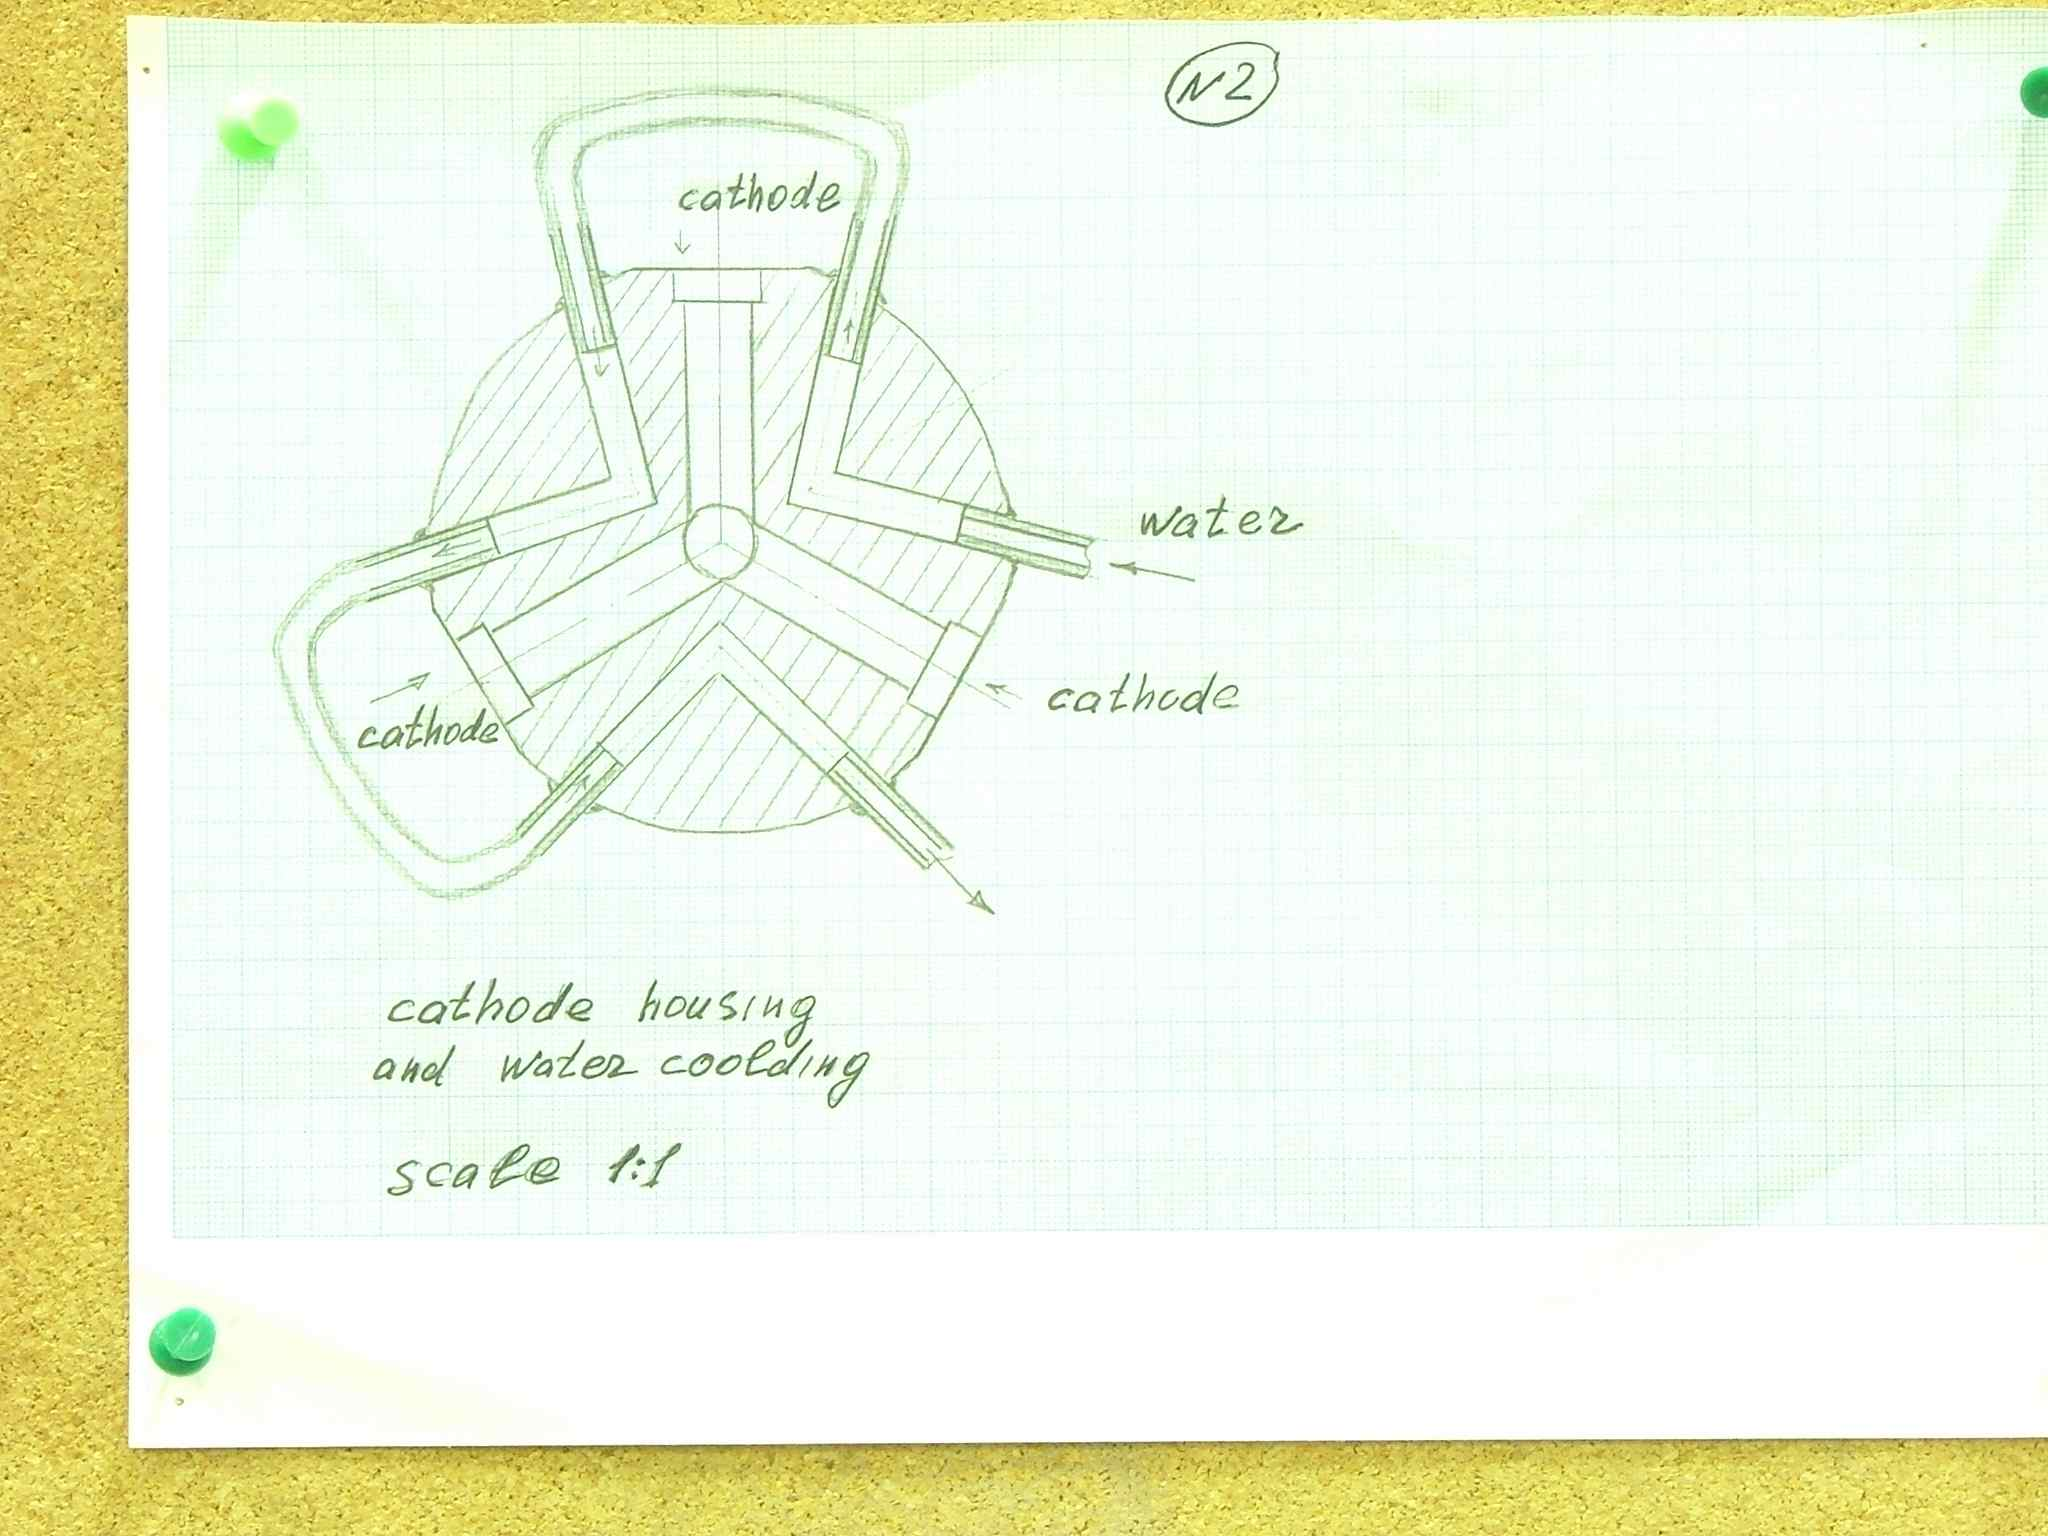 N2
cathode
water
cathode
cathode
cathode housing
and water coolding
scale 1:1